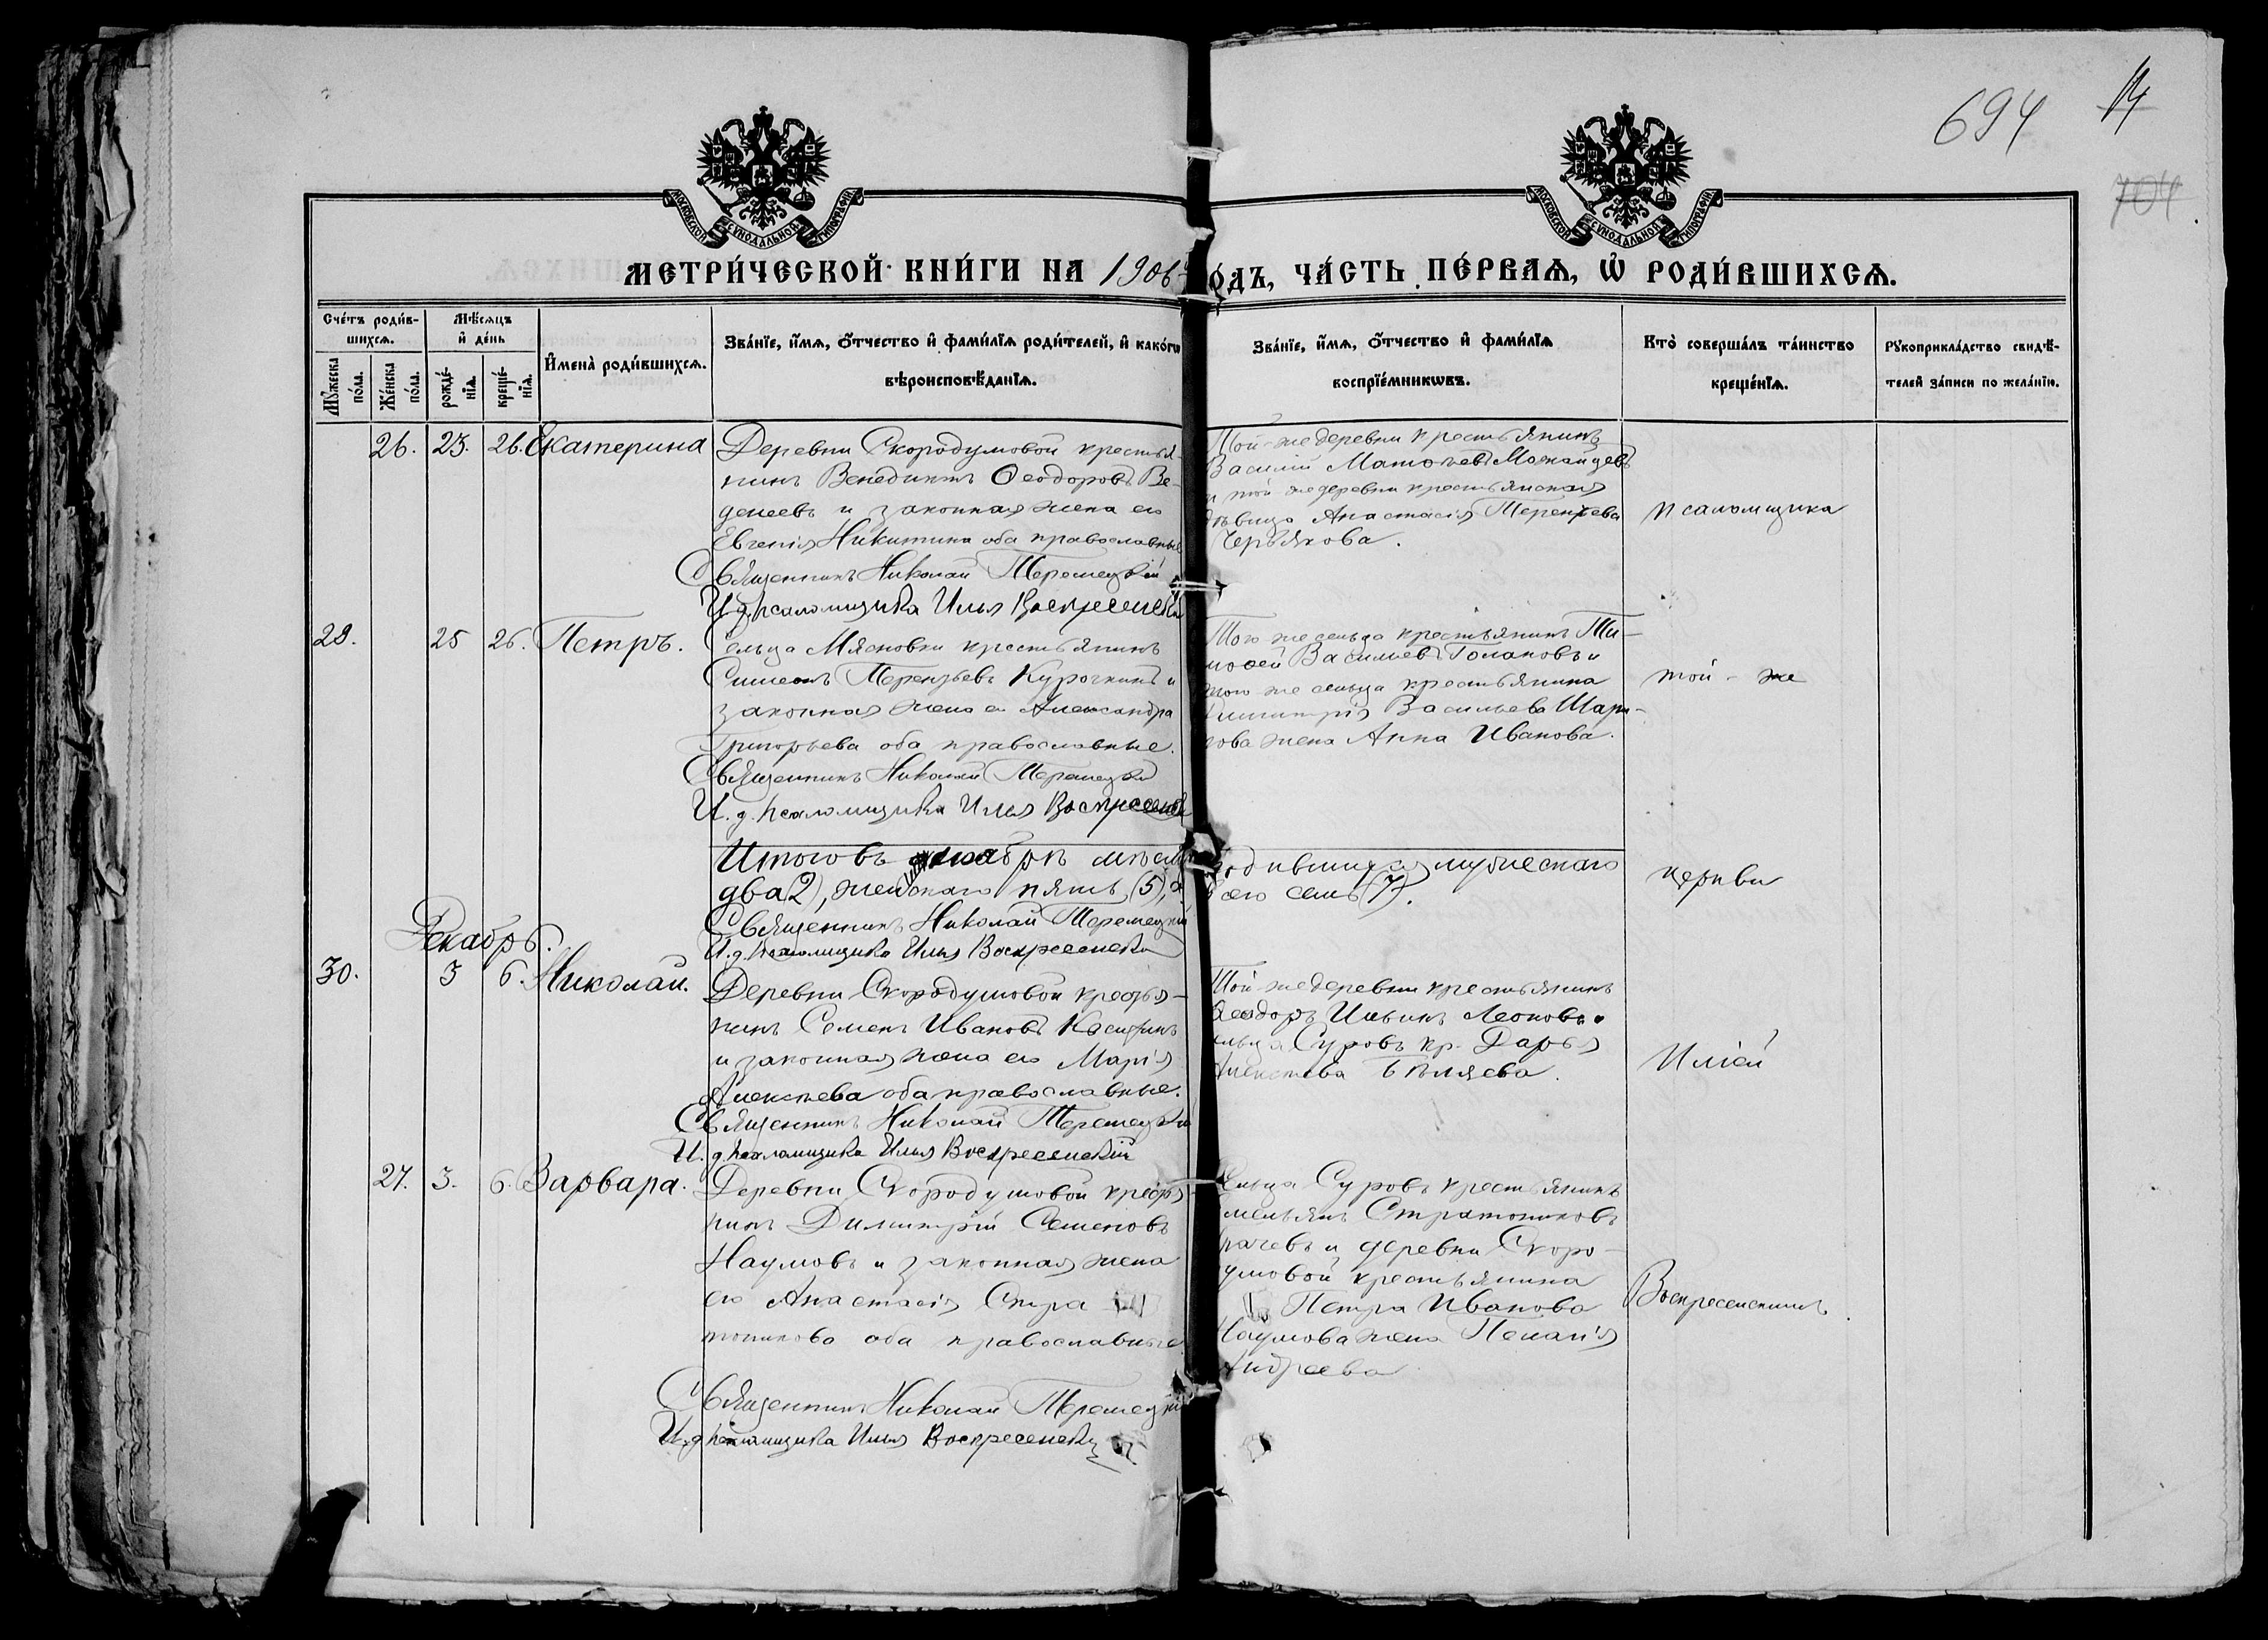 694
14
704
МОСКОВСКОЙ СѴНОДАЛЬНОЙ ТИПОГРАФІИ
МОСКОВСКОЙ СѴНОДАЛЬНОЙ ТИПОГРАФІИ
МЕТРИ́ЧЕСКОЙ КНИ́ГИ НА 1906 го́дъ, ЧА́СТЬ ПЕ́РВАѦ, Ѡ РОДИ́ВШИХСѦ.
Сче́тъ роди́в-
шихсѧ.
Мꙋ́жеска по́ла.
Же́нска по́ла.
Мѣ́сѧцъ
и҆ де́нь
рожде́-
нїѧ.
креще́-
нїѧ.
И҆мена̀ роди́вшихсѧ.
Зва́нїе, и҆́мѧ, ѻ҆́тчество и҆ фами́лїѧ роди́телей, и҆ како́гѡ
вѣроисповѣ́данїѧ.
Зва́нїе, и҆́мѧ, ѻ҆́тчество и҆ фами́лїѧ
воспрїе́мникѡвъ.
Кто̀ соверша́лъ та́инство
креще́нїѧ.
Рꙋкоприкла́дство свидѣ́-
телей за́писи по жела́нїю.
26. 23. 26. Екатерина
Деревни Скородумовой крестья-
нинъ Венедиктъ Ѳеодоровъ Ве-
денеевъ и законная жена его
Евгенія Никитина оба православные
Священникъ Николай Теремецкій
И.д. псаломщика Илья Воскресенскій
Той-же деревни крестьянинъ
Василій Матвѣевъ Можайцевъ
и той же деревни крестьянская
дѣвица Анастасія Терентьева
Червякова.
псаломщика
29. 25 26. Петръ.
Сельца Мясновки крестьянинъ
Симеонъ Терентьевъ Курочкинъ и
законная жена его Александра
Григорьева оба православные.
Священникъ Николай Теремецкій
И. д. псаломщика Илья Воскресенскій
Того же сельца крестьянинъ Ти-
моѳей Васильевъ Голановъ и
того же сельца крестьянина
Димитрія Васильева Шари-
кова жена Анна Иванова.
той - же
Итого въ ноябрѣ мѣсяцѣ родившихся мужескаго
два (2), женскаго пять (5), а всего семь (7).
Священникъ Николай Теремецкій
И. д. псаломщика Илья Воскресенскій
церкви
Декабрь.
30. 3 6. Николай.
Деревни Скородумовой крестья-
нинъ Семенъ Ивановъ
и законная жена его Марія
Алексѣева оба православные.
Священникъ Николай Теремецкій
И. д. псаломщика Илья Воскресенскій
Той-же деревни крестьянинъ
Ѳеодоръ Ильинъ Леоновъ и
сельца Суровъ кр. Дарья
Алексѣева Бѣляева.
Иліей
27. 3. 6. Варвара.
Деревни Скородумовой крестья-
нинъ Димитрій Семеновъ
Наумовъ и законная жена
его Анастасія Стра
тоникова оба православные
Священникъ Николай Теремецкій
И.д. псаломщика Илья Воскресенскій
Сельца Суровъ крестьянинъ
Емельянъ Стратониковъ
и деревни Скоро-
думовой крестьянина
Петра Иванова
Наумова жена Пелагія
Андреева
Воскресенскимъ